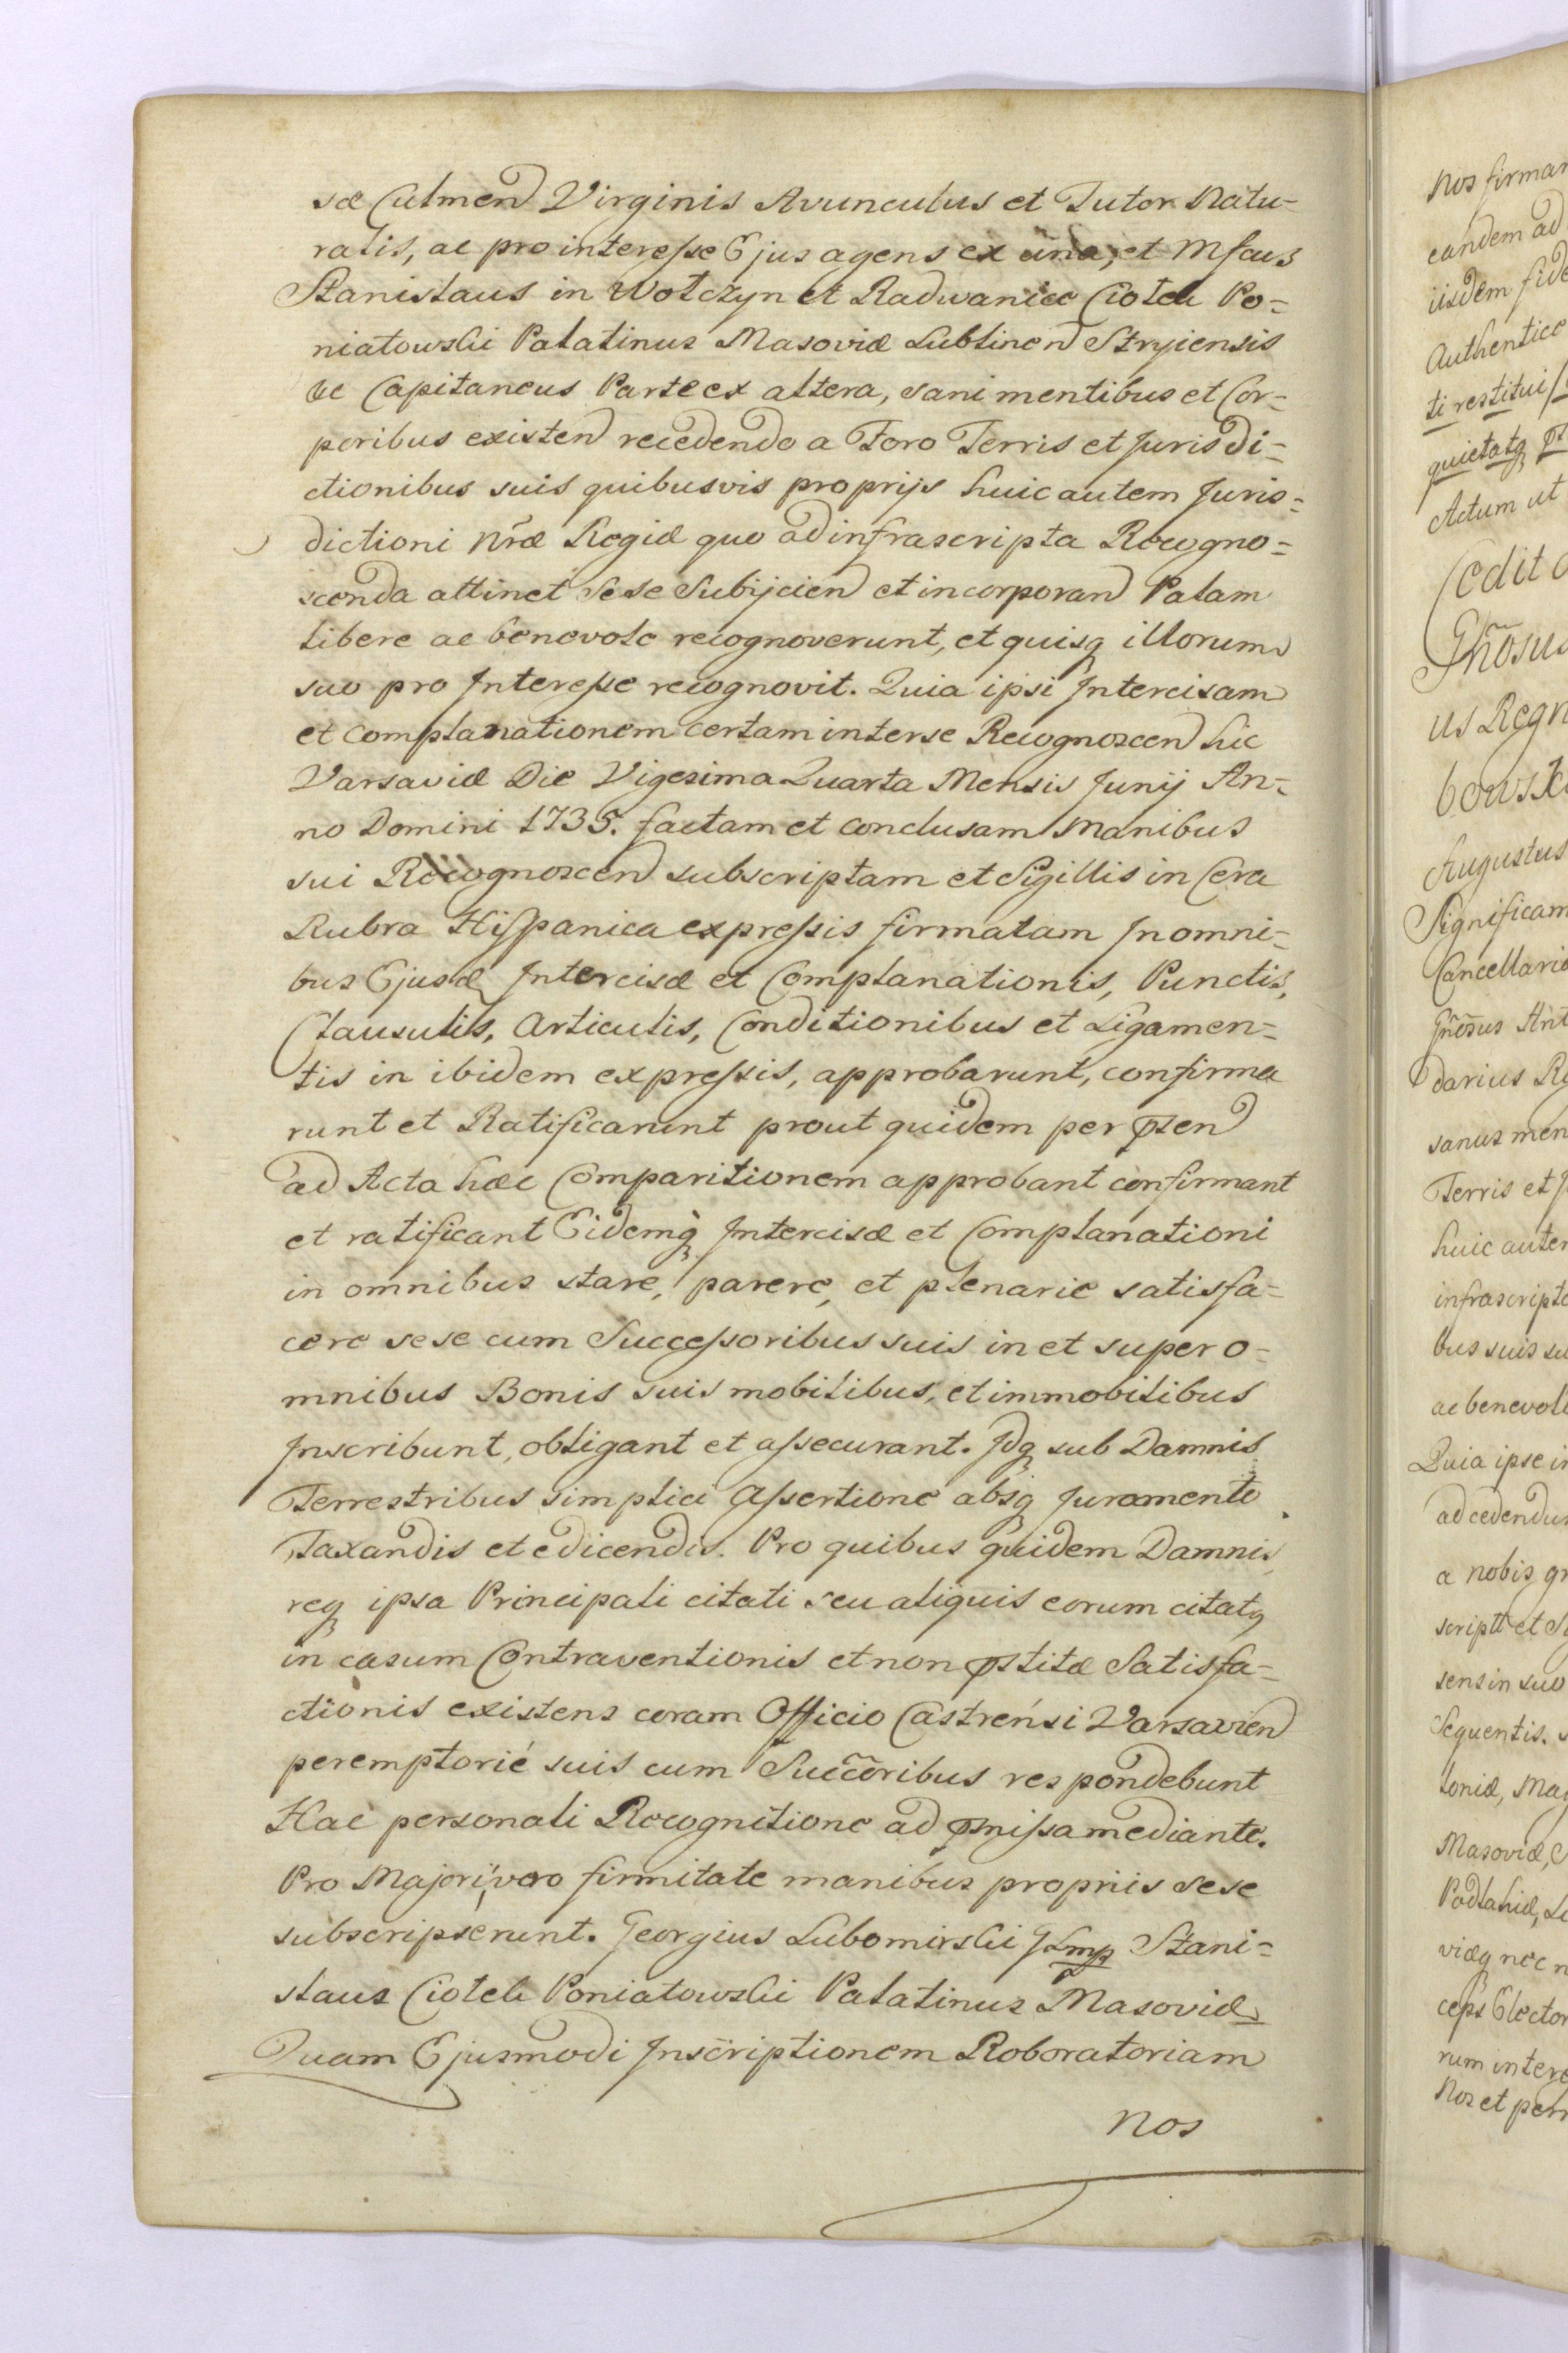 sæ Culmen Virginis Avunculus et Tutor Natu=
ralis, ac pro interesse Ejus agens ex una, et Mfcus
Stanislaus in Wołczyn et Radwaniec Ciołek Po=
niatowski Palatinus Masoviæ Lublinen Stryiensis
&c Capitaneus Parte ex altera, sani mentibus et Cor=
poribus existen recedendo a Foro Terris et Jurisdi=
ctionibus suis quibusvis proprijs huic autem Juris=
dictioni Nræ Regiæ quo ad infrascripta Recogno=
scenda attinet sese Subijcien et incorporan Palam
libere ac benevole recognoverunt, et quisq illorum
suo pro Interesse recognovit. Quia ipsi Intercisam
et Complanationem certam inter se Recognoscen hic
Varsaviæ Die Vigesima Quarta Mensis Junij An=
no Domini 1735. factam et conclusam Manibus
sui Recognoscen subscriptam et Sigillis in Cera
Rubra Hispanica expressis firmatam In omni=
bus Ejusd Intercisæ et Complanationis, Punctis,
Clausulis, Articulis, Conditionibus et Ligamen=
tis in ibidem expressis, approbarunt, confirma
runt et Ratificarunt prout quidem per psen
ad Acta hæc Comparitionem approbant confirmant
et ratificant Eidemq Intercisæ et Complanationi
in omnibus stare, parere, et plenarie satisfa=
cere sese cum Successoribus suis in et super o=
mnibus Bonis suis mobilibus, et immobilibus
Inscribunt, obligant et assecurant. Idq sub Damnis
Terrestribus simplici Assertione absq Juramento
Taxandis et edicendis. Pro quibus quidem Damnis
req ipsa Principali citati seu aliquis eorum citatq
in casum Contraventionis et non pstitæ Satisfa=
ctionis existens coram Officio Castrensi Varsavien
peremptorié suis cum Succoribus respondebunt
Hac personali Recognitione ad pmissa mediante.
Pro Majori vero firmitate manibus propriis sese
subscripserunt. Georgius Lubomirski JLmp Stani=
slaus Ciołek Poniatowski Palatinus Masoviæ
Quam Ejusmodi Inscriptionem Roboratoriam
nos
nos firmar
eandem ad
iisdem fide
Authentice
ti restitui
quietatq
Actum ut
Cedit
Gnosus
us Regn
bowsk
Augustus
Significam
Cancellaria
Gnosus Ant
darius Re
sanus men
Terris et J
huic auter
infrascripto
bus suis su
ac benevol
Quia ipse in
ad cedendu
a nobis gr
script et S
sens in suo
Sequentis.
toniæ, Mag
Masoviæ, S
Podlahiæ, L
viæq nec n
ceps Elector
rum intere
Nos et perp